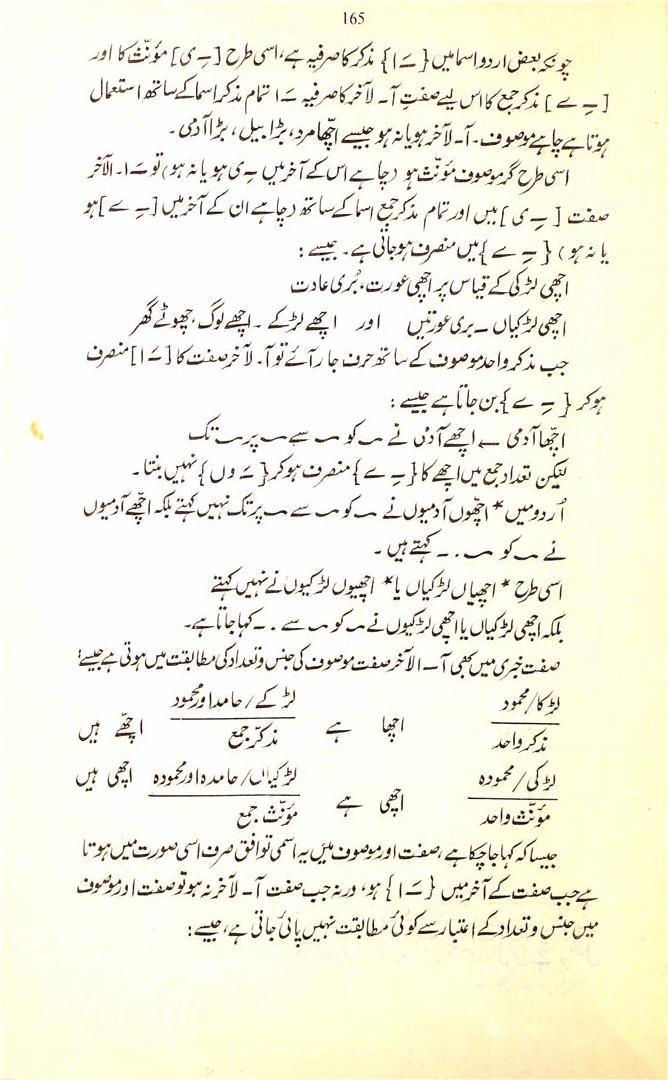 165
چونکہ بعض اردو اسما میں {ـَ ا} مذکر کا صرفیہ ہے، اسی طرح [ـِ ی] مؤنّث کا اور
[ـِ ے] مذکر جمع کا اس لیے صفتِ آ۔ لآخر کا صرفیہ ـَ ا تمام مذکر اسما کے ساتھ استعمال
ہوتا ہے چاہے موصوف۔ آ۔ لآخر ہو یا نہ ہو جیسے اچّھا مرد، بڑا بیل، بڑا آدمی۔
اسی طرح گر موصوف مؤنّث ہو (چاہے اس کے آخر میں ـِ ی ہو یا نہ ہو) تو ـَ ا۔ الآخر
صفت [ـِ ی] میں اور تمام مذکر جمع اسما کے ساتھ (چاہے ان کے آخر میں [ـِ ے] ہو
یا نہ ہو) {ـِ ے} میں منصرف ہو جاتی ہے۔ جیسے:
اچھی لڑکی کے قیاس پر اچھی عورت، بُری عادت
اچھی لڑکیاں ۔ بری عورتیں اور اچھے لڑکے ۔ اچھے لوگ، چھوٹے گھر
جب مذکر واحد موصوف کے ساتھ حرف جار آئے تو آ۔ لآخر صفت کا [ـَ ا] منصرف
ہو کر {ـِ ے} بن جاتا ہے جیسے:
اچّھا آدمی ← اچھے آدمی نے ~ کو ~ سے ~ پر ~ تک
لیکن تعداد جمع میں اچھے کا {ـِ ے} منصرف ہو کر {ـَ وں} نہیں بنتا۔
اُردو میں * اچّھوں آدمیوں نے ~ کو ~ سے ~ پر تک نہیں کہتے بلکہ اچّھے آدمیوں
نے ~ کو ~ . ۔ کہتے ہیں ۔
اسی طرح * اچھیاں لڑکیاں یا * اچھیوں لڑکیوں نے نہیں کہتے
بلکہ اچھی لڑکیاں یا اچھی لڑکیوں نے ~ کو ~ سے . ۔ کہا جاتا ہے۔
صفت خبری میں بھی آ۔ الآخر صفت موصوف کی جنس و تعداد کی مطابقت میں ہوتی ہے جیسے:
لڑکا/محمود اچھا ہے لڑکے/حامد اور محمود اچّھے ہیں
مذکر واحد مذکّر جمع
لڑکی/محمودہ اچھی ہے لڑکیاں/حامدہ اور محمودہ اچھی ہیں
مؤنّث واحد مؤنّث جمع
جیسا کہ کہا جا چکا ہے، صفت اور موصوف میں یہ اسمی توافق صرف اسی صورت میں ہوتا
ہے جب صفت کے آخر میں {ـَ ا} ہو، ورنہ جب صفت آ۔ لآخر نہ ہو تو صفت اور موصوف
میں جنس و تعداد کے اعتبار سے کوئی مطابقت نہیں پائی جاتی ہے، جیسے: